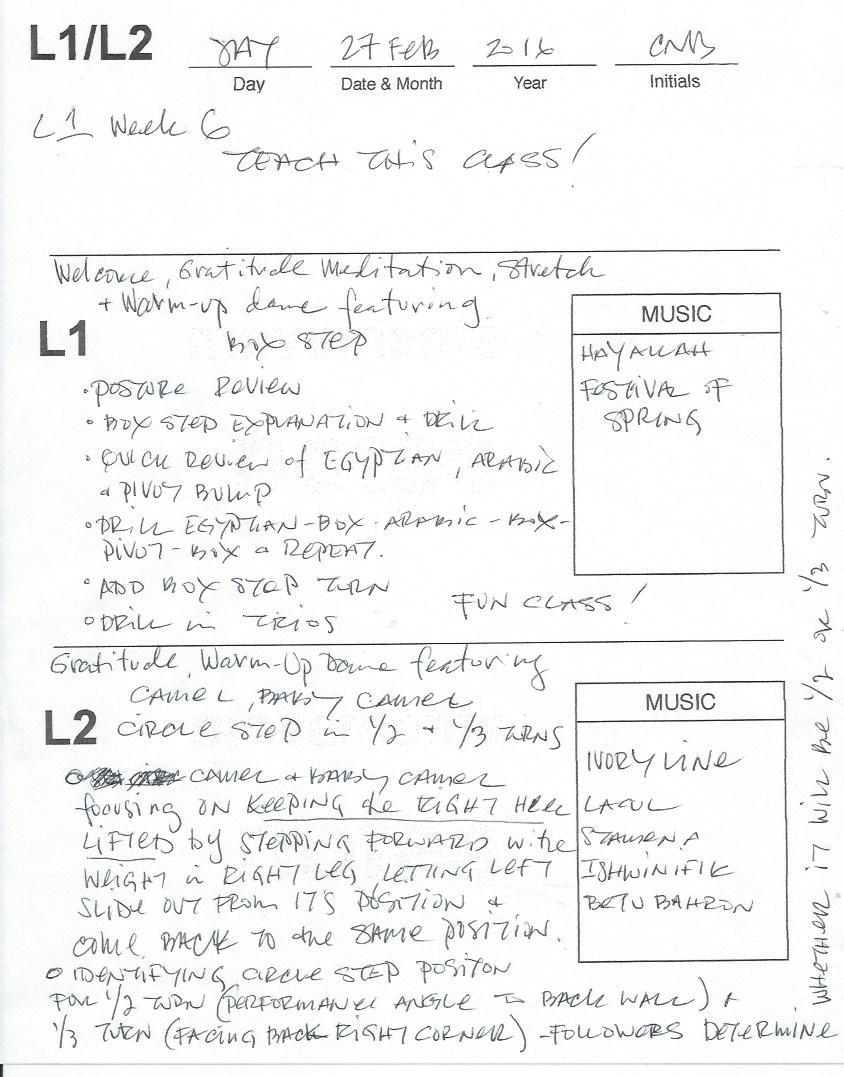 L1/L2 27 FEB 2016 CMB
Day Date & Month Year Initials
L1 Week 6
TEACH THIS CLASS!
Welcome, Gratitude Meditation, Stretch
+ Warm-up dance featuring
BOX STEP
L1
• POSTURE REVIEW
• BOX STEP EXPLANATION + DRILL
• QUICK REVIEW of EGYPTIAN, ARABIC
& PIVOT BUMP
• DRILL EGYPTIAN-BOX-ARABIC-BOX-
PIVOT-BOX & REPEAT.
• ADD BOX STEP TURN
• DRILL in TRIOS
FUN CLASS!
MUSIC
HAYALLAH
FESTIVAL OF
SPRING
Gratitude, Warm-Up Dance featuring
CAMEL, BABY CAMEL
L2 CIRCLE STEP in 1/2 + 1/3 TURNS
o CAMEL & BABY CAMEL
focusing ON KEEPING the RIGHT HEEL
LIFTED by STEPPING FORWARD w the
WEIGHT in RIGHT LEG LETTING LEFT
SLIDE OUT FROM IT'S POSITION &
COME BACK TO the SAME POSITION.
o IDENTIFYING CIRCLE STEP POSITON
FOR 1/2 TURN (PERFORMANCE ANGLE TO BACK WALL) +
1/3 TURN (FACING BACK RIGHT CORNER) - FOLLOWERS DETERMINE
WHETHER IT WILL BE 1/2 OR 1/3 TURN.
MUSIC
IVORYLINE
LAGUL
ISHWINIFIK
BETU BAHRON